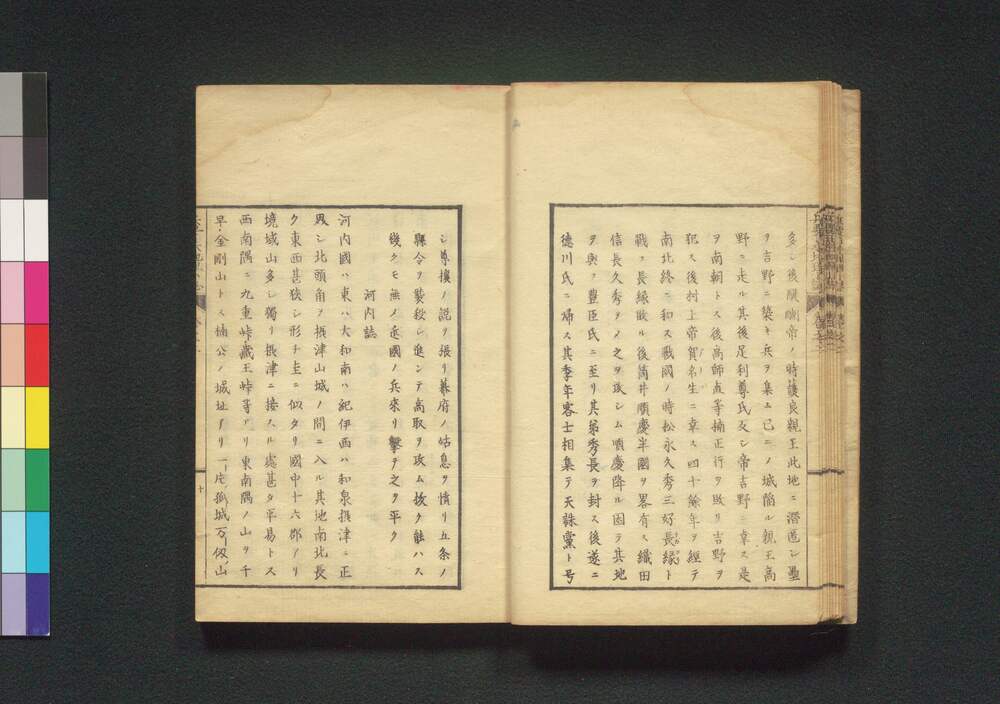 多シ後醍醐帝ノ時護良親王此地ニ潛匿シ壘
ヲ吉野ニ築キ兵ヲ集ム已ニノ城陷ル親王高
野ニ走ル其後足利尊氏反シ帝吉野ニ幸ス是
ヲ南朝トス後高師直等楠正行ヲ敗リ吉野ヲ
犯ス後村上帝賀名生ニ幸ス四十餘年ヲ經テ
南北終ニ和ス戰國ノ時松永久秀三好長縁ト
戰フ長縁敗ル後筒井順慶半國ヲ畧有ス織田
信長久秀ヲノ之ヲ攻シム順慶降ル因テ其地
ヲ與フ豐臣氏ニ至リ其弟秀長ヲ封ス後遂ニ
德川氏ニ歸ス其季年客士相集テ天誅黨ト号
シ尊攘ノ説ヲ張リ幕府ノ姑息ヲ憤リ五条ノ
縣令ヲ襲殺シ進ンテ高取ヲ攻ム拔ク能ハス
幾クモ無ノ近國ノ兵來リ擊テ之ヲ平ク
河内誌
河内國ハ東ハ大和南ハ紀伊西ハ和泉摂津ニ正
シ北頭角ヲ摂津山城ノ間ニ入ル其地南北長
ク東西甚狹シ形チ圭ニ似タリ國中十六郡アリ
境域山多シ獨リ摂津ニ接スル處甚タ平易トス
西南隅ニ九重峠藏王峠等アリ東南隅ノ山ヲ千
早金剛山トス楠公ノ城址アリ一片孤城万仭山
十